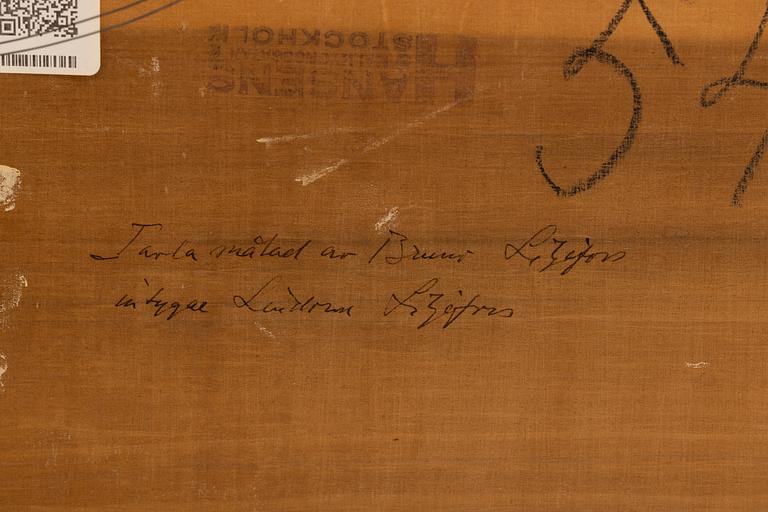 STOCKHOLM
5
Tavla målad av Bruno Liljefors
intygas Lindorm Liljefors